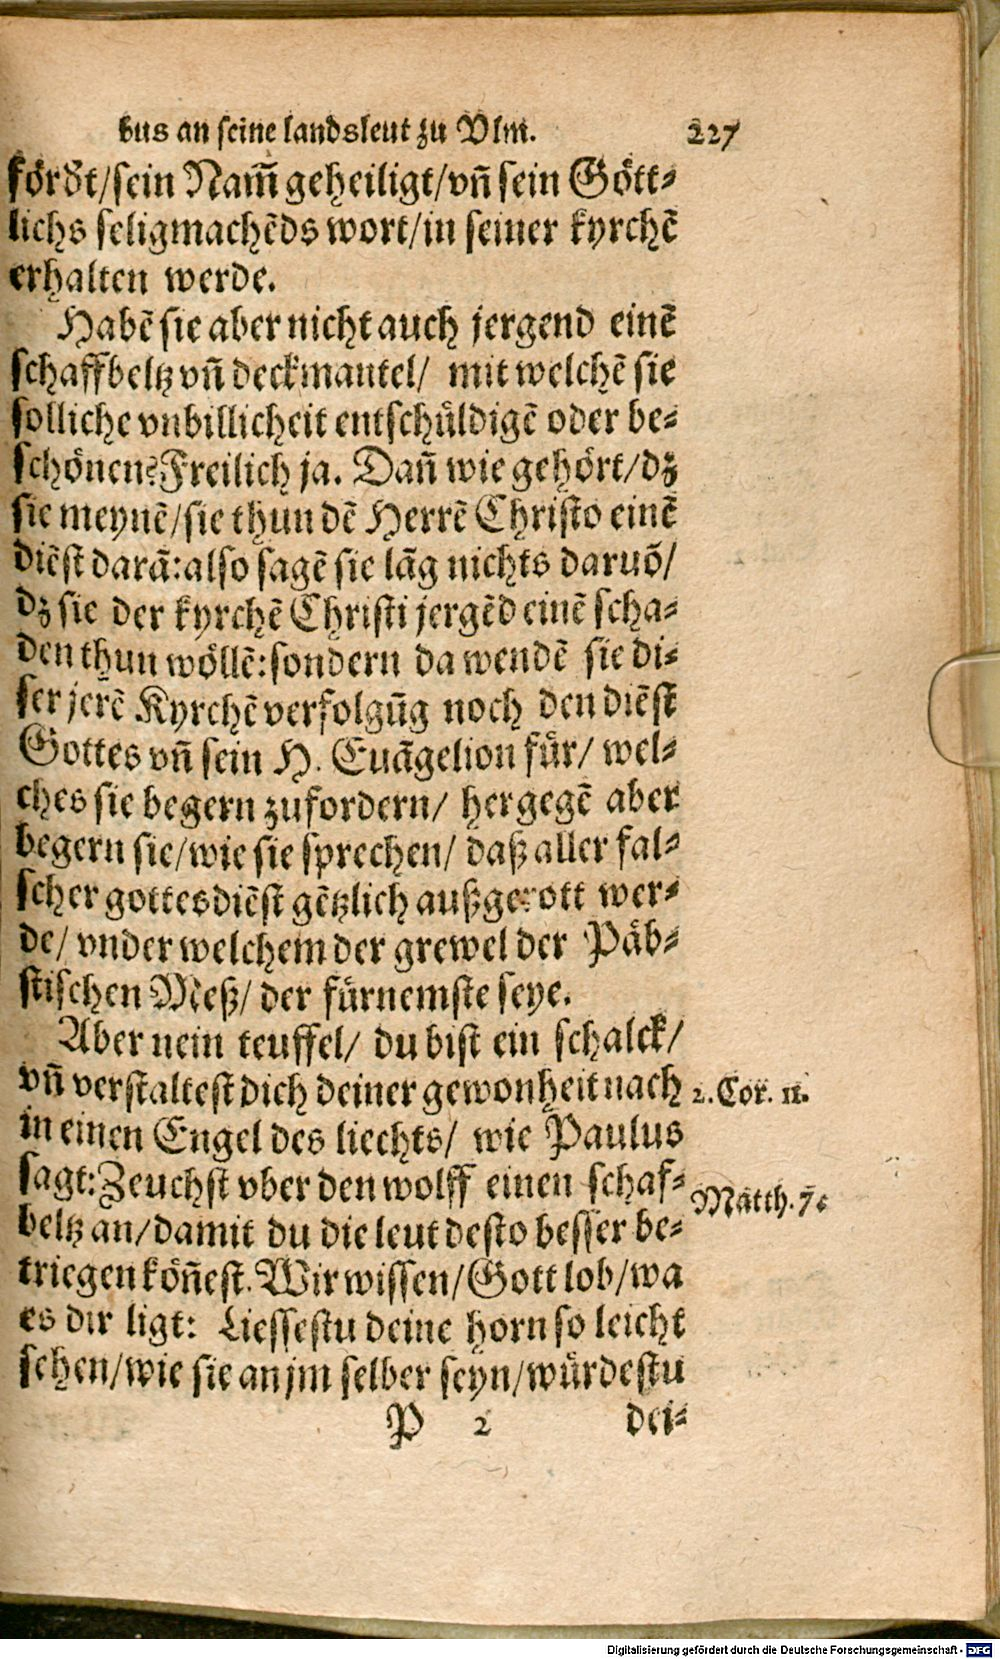 bus an seine landsleut zu Vlm. 227
förd't/sein Nam̃ geheiligt/vn̄ sein Gött-
lichs seligmachēds wort/in seiner kyrchē
erhalten werde.
Habē sie aber nicht auch jergend einē
schaffbeltz vn̄ deckmantel/ mit welchē sie
solliche vnbillicheit entschüldigē oder be-
schönen? Freilich ja. Dañ wie gehört/dz
sie meynē/sie thun dē Herrē Christo einē
diēst darā: also sagē sie lāg nichts daruō/
dz sie der kyrchē Christi jergēd einē scha-
den thun wöllē: sondern da wendē sie di-
ser jerē Kyrchē verfolgūg noch den diēst
Gottes vn̄ sein H. Euāgelion für/ wel-
ches sie begern zufordern/ hergegē aber
begern sie/wie sie sprechen/ daß aller fal-
scher gottesdiēst gētzlich außgerott wer-
de/ vnder welchem der grewel der Päb-
stischen Meß/ der fürnemste seye.
Aber nein teuffel/ du bist ein schalck/
vn̄ verstaltest dich deiner gewonheit nach 2. Cor. 11.
in einen Engel des liechts/ wie Paulus
sagt: Zeuchst vber den wolff einen schaf-
Matth. 7.
beltz an/damit du die leut desto besser be-
triegen köñest. Wir wissen/Gott lob/wa
es dir ligt: Liessestu deine horn so leicht
sehen/wie sie an jm selber seyn/würdestu
P 2 dei-
Digitalisierung gefördert durch die Deutsche Forschungsgemeinschaft - DFG